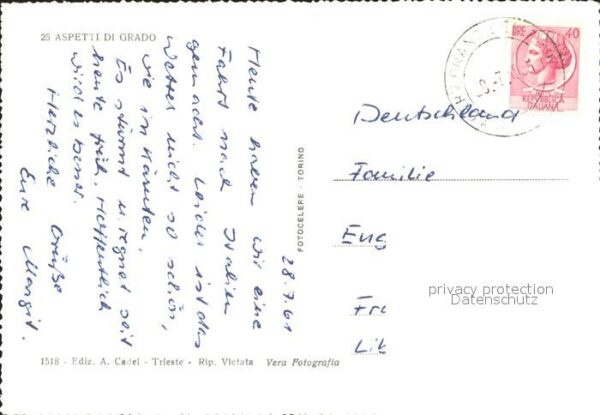 25 ASPETTI DI GRADO
28.7.61
Heute haben wir eine
Fahrt nach Italien
gemacht. Leider ist das
Wetter nicht so schön,
wie in Kärnten.
Es stürmt u. regnet seit
heute früh. Hoffentlich
wird es besser.
Herzliche Grüße
Eure Margit.
1518 - Ediz. A. Cadel - Trieste - Rip. Vietata Vera Fotografia
FOTOCELERE - TORINO
LIRE 40
REPVBBLICA
ITALIANA
Deutschland
Familie
Eng
Fr
privacy protection
Datenschutz